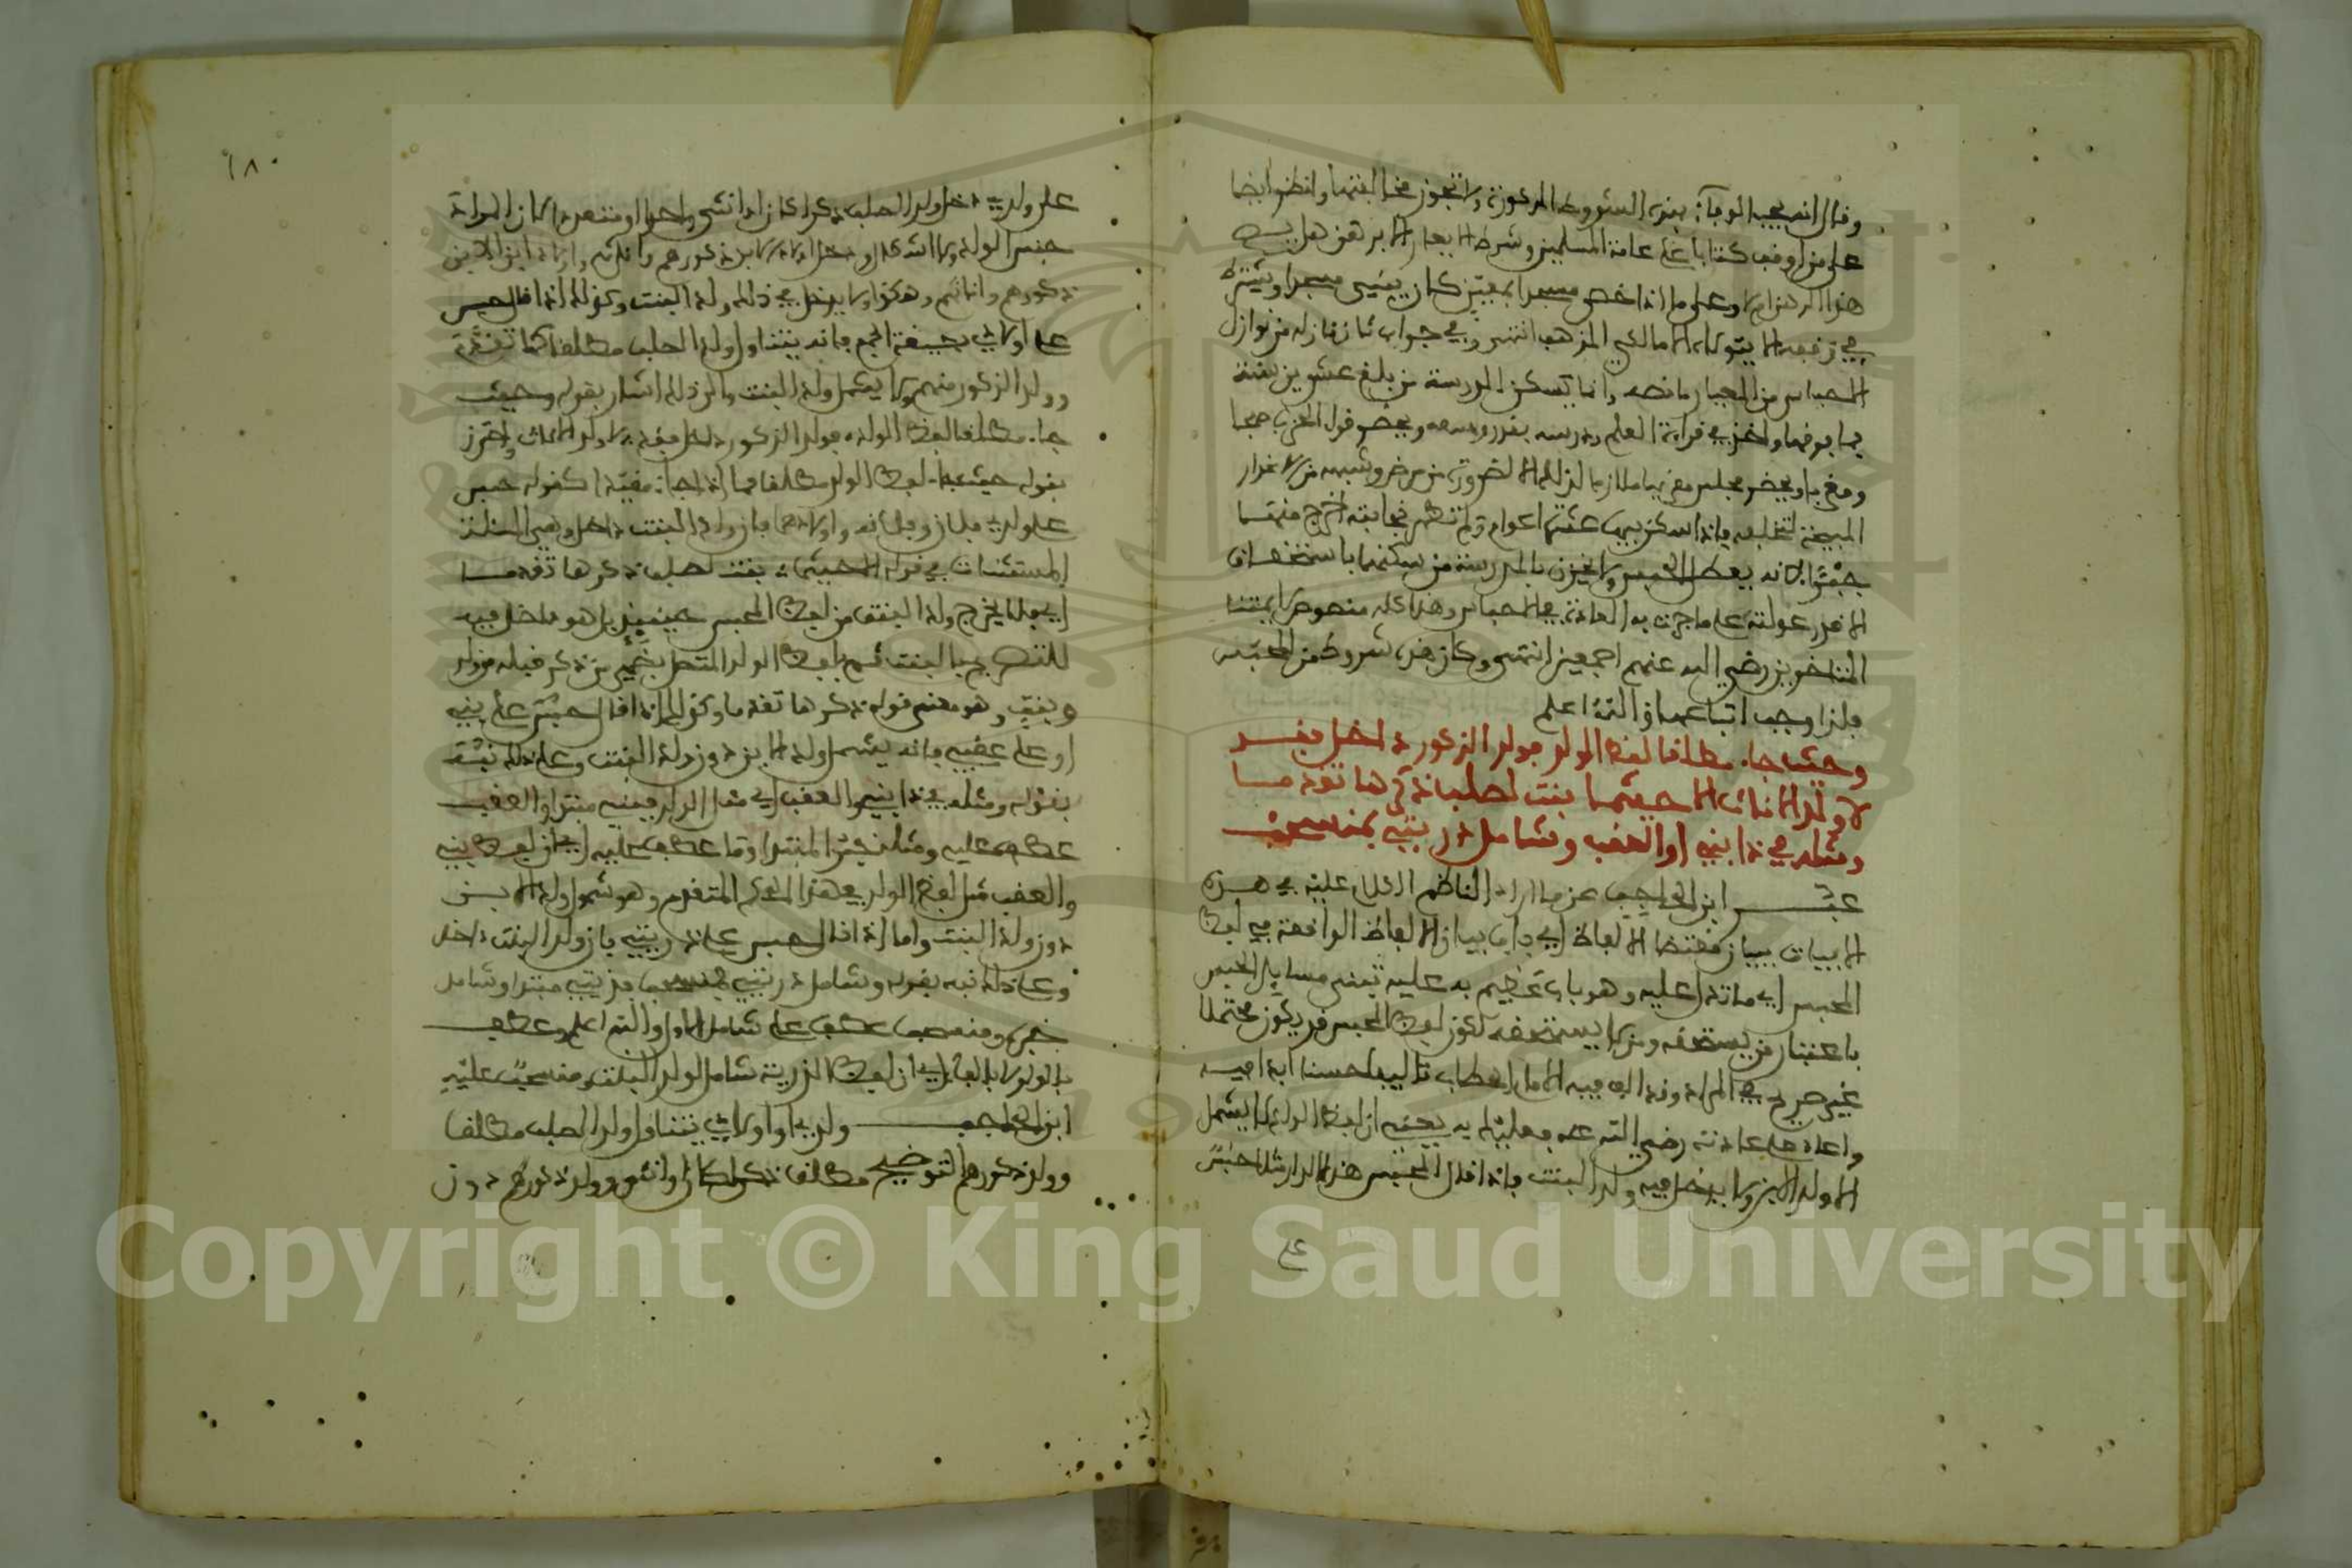 وقال انه يجب الوفاء بهذه الشروط المذكورة ولا تجوز مخالفتها وانظر ايضا
على من اوقف كتابا على عامة المسلمين وشرط الا يعار الا برهن هل يصح
هذا الرهن ام لا وعلى ما اذا خص مسجدا بمعين كان يبني مسجدا ويشترط
في توقيفه الا يتولاه الا مالكي المذهب انتهى وفي جواب ثان نازلة من نوازل
الاحباس من المعيار ما نصه وانما يسكن المدرسة من بلغ عشرين سنة
فما فوقها واخذ في قراءة العلم ودرسه بقدر وسعه ويحضر قراءة الحزب صبحا
ومغربا ويحضر مجلس مقريها ملازما لذلك الا لضرورة من مرض وشبهه من الاعذار
المبيحة لتخلفه فاذا سكن فيها عشرة اعوام ولم تظهر نجابته اخرج منها
جبرا لانه يعطل الحبس ولا يخزن بالمدرسة من سكنها باستحقاق
الا قدر عولته على ما جرت به العادة في الاحباس وهذا كله منصوص لايمتنا
المتاخرين رضي الله عنهم اجمعين انتهى وكان هذه شروط من المحبس
فلذا وجب اتباعها والله اعلم
وحيث جاء مطلقا لفظ الولد فولد الذكور داخل فقد
لا ولد الاناث الا حيثما بنت لصلب ذكرها تقدما
ومثله في ذا بنيه او العقب وشامل ذريتي بمنسحب
عبر ابن الحاجب عن ما اراد الناظم الكلام عليه في هذه
الابيات ببيان مقتضى الالفاظ اي باب بيان الالفاظ الواقعة في لفظ
المحبس اي ما تدل عليه وهو باب عظيم به عليه تبنى مسايل الحبس
باعتبار من يستحقه ومن لا يستحقه لكون لفظ المحبس قد يكون محتملا
غير صريح في المراد وقد الف فيه الامام الحطاب تاليفا حسنا ابدا فيه
واعاد على عادته رضي الله عنه فعليك به يعني ان لفظ الولد لا يشمل
الا ولد الابن ولا يدخل فيه ولد البنت فاذا قال المحبس هذه الدار مثلا حبس
على
١٨٠
على ولدي دخل ولد الصلب ذكرا كان او انثى واحدا او متعددا لان المراد
جنس الولد ولا اشكال ودخل اولاد الابن ذكورهم واناثهم واولاد ابن الابن
ذكورهم واناثهم وهكذا ولا يدخل في ذلك ولد البنت وكذلك اذا قال حبس
على اولادي بصيغة الجمع فانه يتناول ولد الصلب مطلقا كما تقدم
وولد الذكور منهم ولا يشمل ولد البنت والى ذلك اشار بقوله وحيث
جاء مطلقا لفظ الولد فولد الذكور داخل فقد لا ولد الاناث واحترز
بقوله حيث جاء لفظ الولد مطلقا مما اذا جاء مقيدا كقوله حبس
على ولدي فلان وفلانة واولادهما فان ولد البنت داخل وهي
المستثنات في قوله الا حيثما بنت لصلب ذكرها تقدما
اي فلا يخرج ولد البنت من لفظ المحبس حينيذ بل هو داخل فيه
للتصريح بالبنت ثم بلفظ الولد المتصل بضمير من ذكر قبله من ولد
وبنت وهو معنى قوله ذكرها تقدما وكذلك اذا قال حبس على بنيه
او على عقبه فانه يشمل ولد الابن دون ولد البنت وعلى ذلك نبه
بقوله ومثله في ذا بنيه والعقب اي مثل الولد فبنيه مبتدا والعقب
عطف عليه ومثله خبر المبتدا وما عطف عليه اي ان لفظ بنيه
والعقب مثل لفظ الولد في هذا الحكم المتقدم وهو شمول ولد الابن
دون ولد البنت واما اذا قال حبس على ذريتي فان ولد البنت داخل
وعلى ذلك نبه بقوله وشامل ذريتي فمنسحب فذريتي مبتدا وشامل
خبره ومنسحب عطف على شامل الاول والله اعلم وعطف
بالواو لا بالفاء اي ان لفظ الذرية شامل لولد البنت ومنسحب عليه
ابن الحاجب وولدي او اولادي يتناول ولد الصلب مطلقا
وولد ذكورهم التوضيح مطلقا ذكرا كان او انثى وولد ذكورهم دون
Copyright © King Saud University